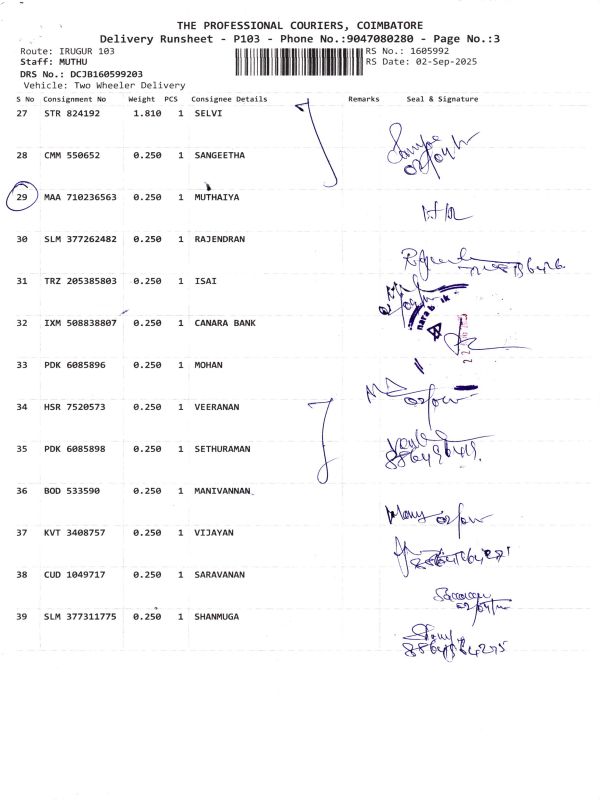 THE PROFESSIONAL COURIERS, COIMBATORE
Delivery Runsheet - P103 - Phone No.:9047080280 - Page No.:3
Route: IRUGUR 103 RS No.: 1605992
Staff: MUTHU RS Date: 02-Sep-2025
DRS No.: DCJB160599203
Vehicle: Two Wheeler Delivery
S No Consignment No Weight PCS Consignee Details Remarks Seal & Signature
27 STR 824192 1.810 1 SELVI
28 CMM 550652 0.250 1 SANGEETHA
29 MAA 710236563 0.250 1 MUTHAIYA
30 SLM 377262482 0.250 1 RAJENDRAN
31 TRZ 205385803 0.250 1 ISAI
32 IXM 508838807 0.250 1 CANARA BANK
33 PDK 6085896 0.250 1 MOHAN
34 HSR 7520573 0.250 1 VEERANAN
35 PDK 6085898 0.250 1 SETHURAMAN
36 BOD 533590 0.250 1 MANIVANNAN
37 KVT 3408757 0.250 1 VIJAYAN
38 CUD 1049717 0.250 1 SARAVANAN
39 SLM 377311775 0.250 1 SHANMUGA